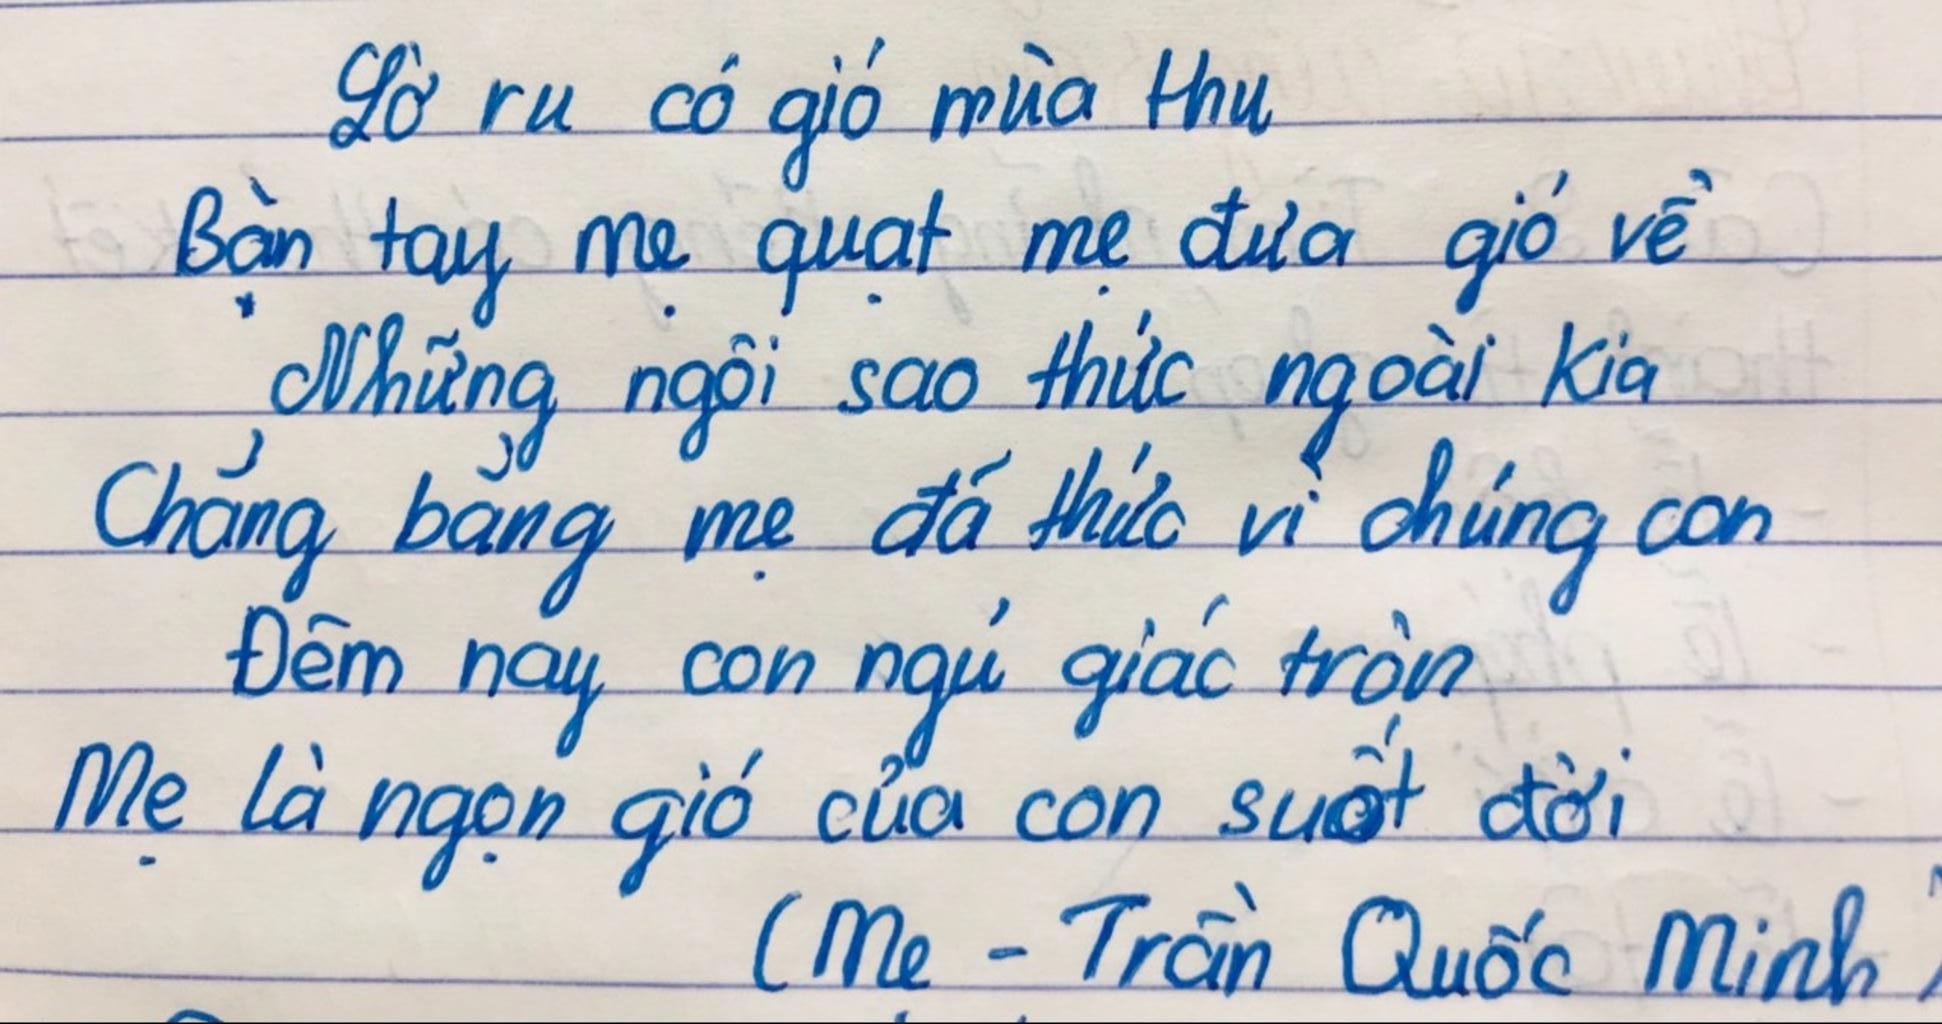 Lờ ru có gió mùa thu
Bàn tay mẹ quạt mẹ đưa gió về
Những ngôi sao thức ngoài kia
Chẳng bằng mẹ đá thức vì chúng con
Đêm nay con ngủ giác tròn
Mẹ là ngọn gió của con suốt đời
(Mẹ - Trần Quốc Minh)